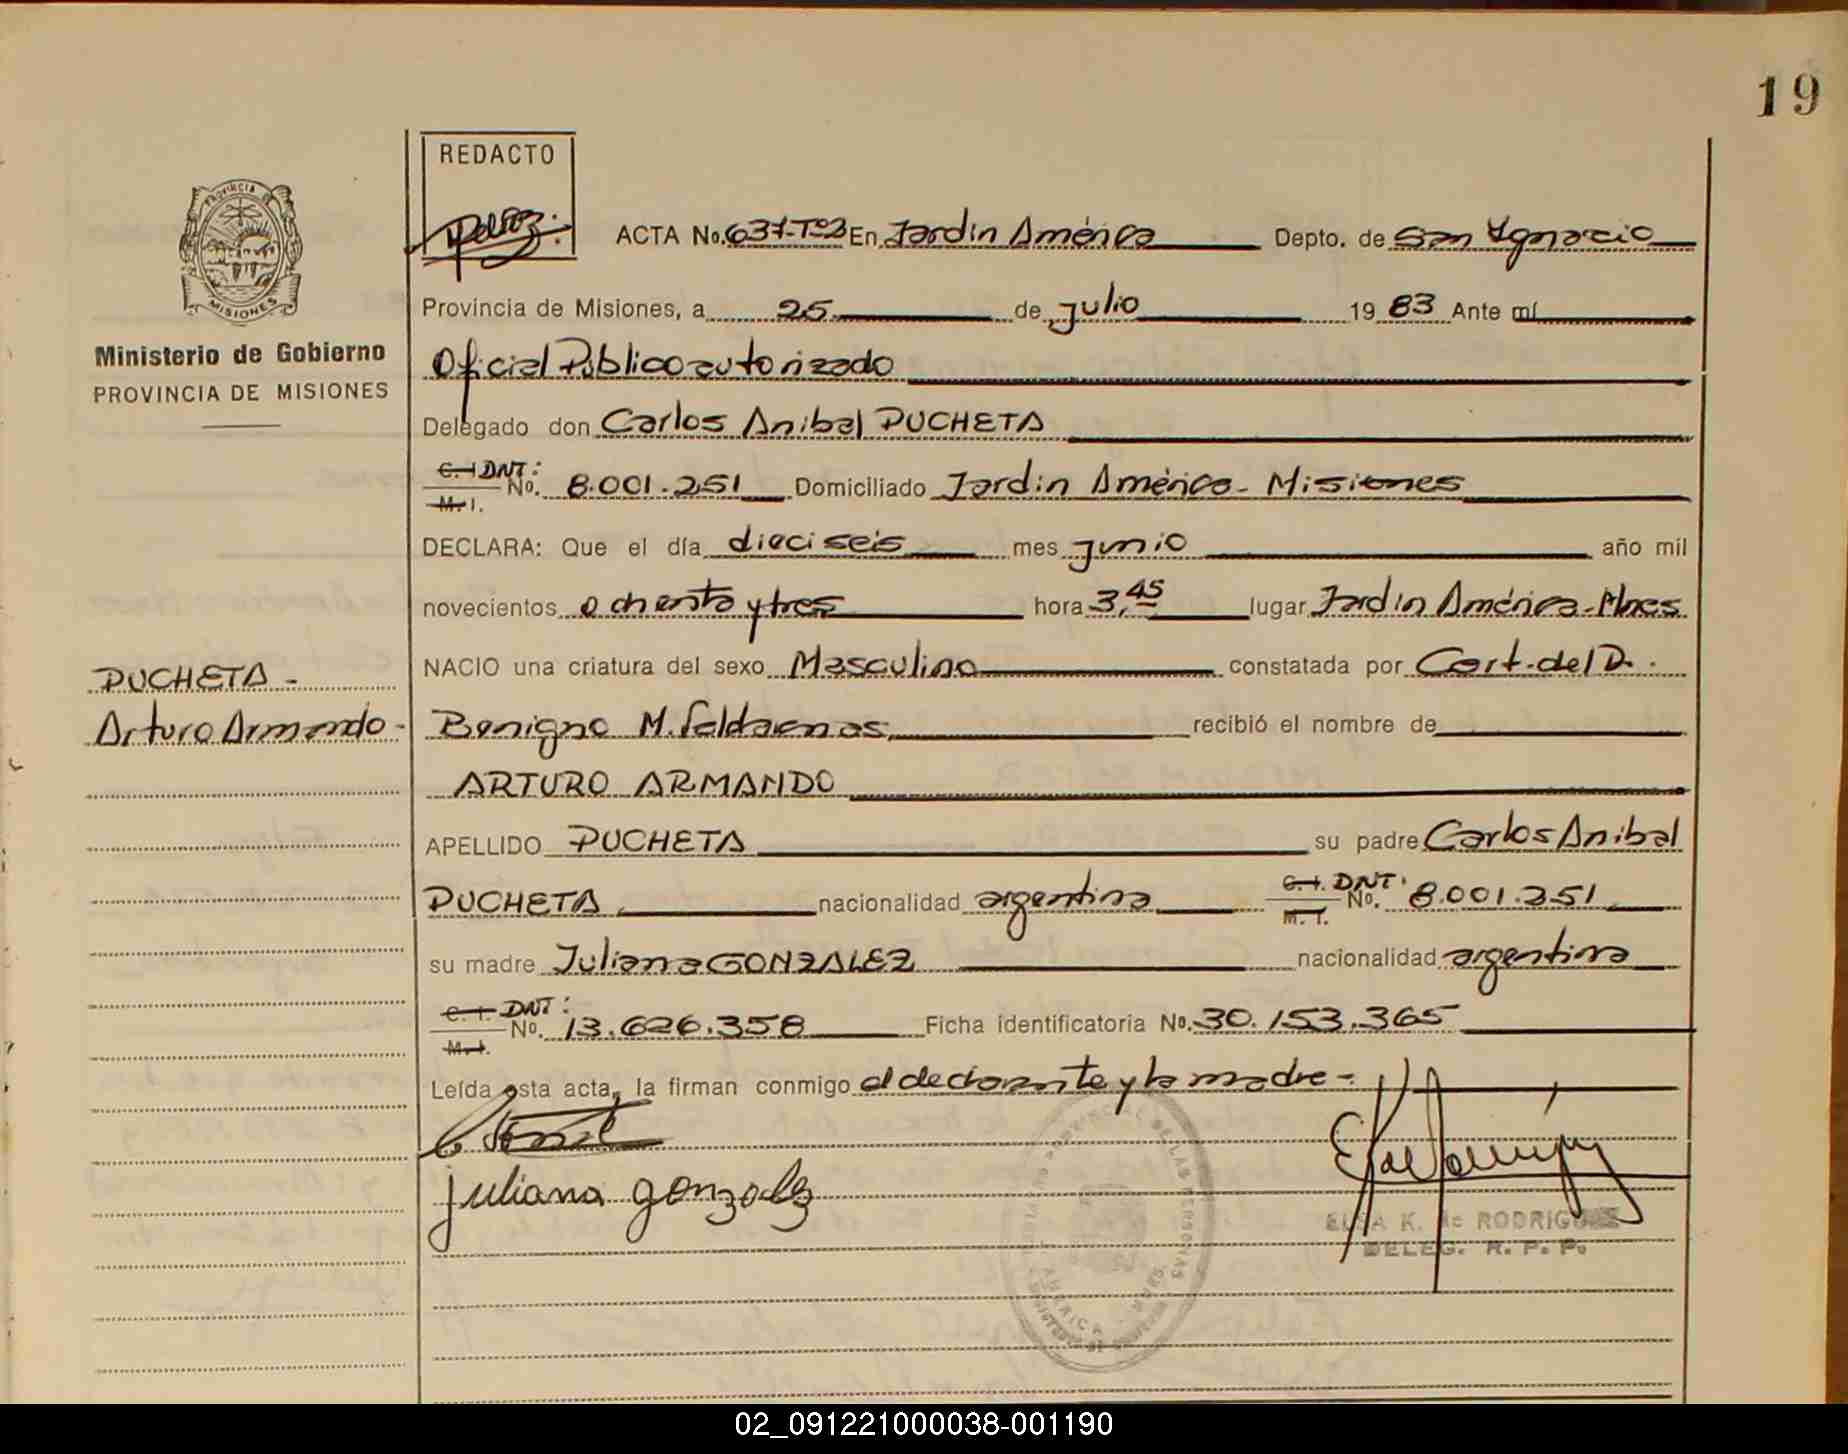 19
REDACTO
ACTA No. 637-Tº2 En Jardin América Depto. de San Ignacio
PROVINCIA DE MISIONES
Provincia de Misiones, a 25 de julio 19 83 Ante mí
Ministerio de Gobierno
PROVINCIA DE MISIONES
Oficial Público autorizado
Delegado don Carlos Anibal PUCHETA
C. I. DNI: M. I. No. 8.001.251 Domiciliado Jardin América - Misiones
DECLARA: Que el día dieciseis mes junio año mil
novecientos ochenta y tres hora 3,45 lugar Jardin América - Mnes
NACIO una criatura del sexo Masculino constatada por Cert. del D.
PUCHETA -
Arturo Armando -
Benigno M. recibió el nombre de
ARTURO ARMANDO
APELLIDO PUCHETA su padre Carlos Anibal
PUCHETA nacionalidad argentina C. I. DNI. M. I. No. 8.001.251
su madre Juliana GONZALEZ nacionalidad argentina
C. I. DNI: M. I. No. 13.626.358 Ficha identificatoria No. 30.153.365
Leída esta acta, la firman conmigo el declarante y la madre -
juliana gonzalez
ELSA K. de RODRIGUEZ
DELEG. R. P. P.
02_091221000038-001190